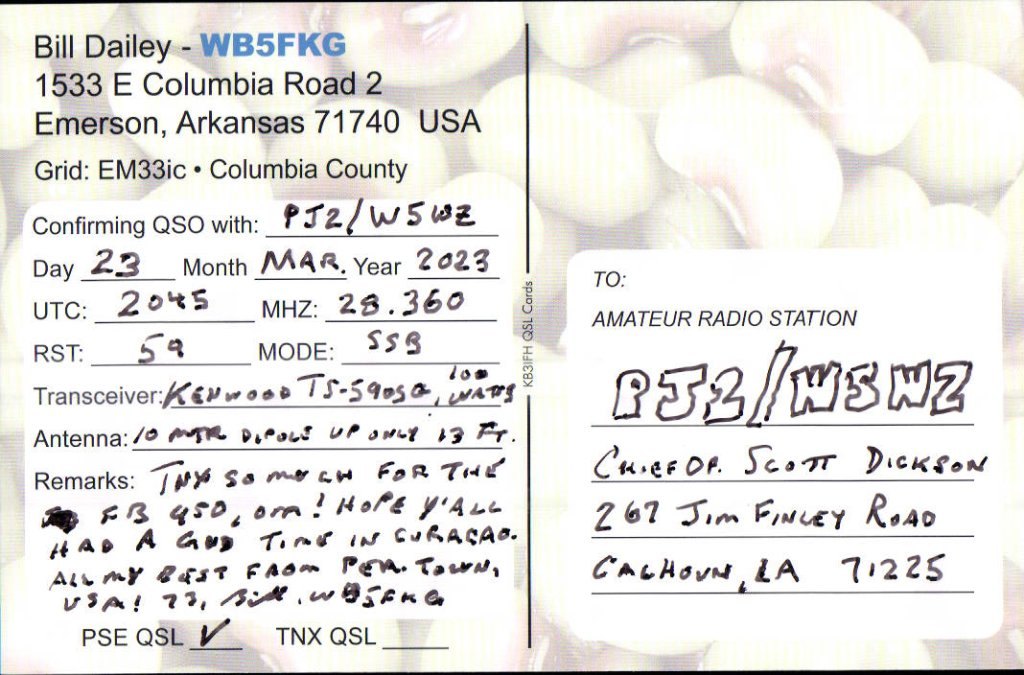 Bill Dailey - WB5FKG
1533 E Columbia Road 2
Emerson, Arkansas 71740 USA
Grid: EM33ic • Columbia County
Confirming QSO with: PJ2/W5WZ
Day 23 Month MAR. Year 2023
UTC: 2045 MHZ: 28.360
RST: 59 MODE: SSB
Transceiver: KENWOOD TS-590SG, 100 WATTS
Antenna: 10 MTR DIPOLE UP ONLY 13 FT.
Remarks: TNX SO MUCH FOR THE
FB QSO, OM! HOPE Y'ALL
HAD A GUD TIME IN CURACAO.
ALL MY BEST FROM PEA TOWN,
USA! 73, Bill, WB5FKG
PSE QSL ✓ TNX QSL
KB3IFH QSL Cards
TO:
AMATEUR RADIO STATION
PJ2/W5WZ
CHIEF OP. SCOTT DICKSON
267 JIM FINLEY ROAD
CALHOUN, LA 71225